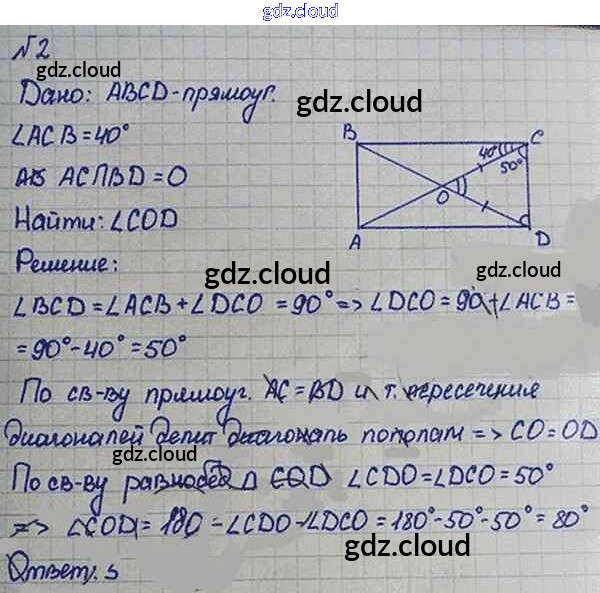 gdz.cloud
№2
gdz.cloud
Дано: ABCD-прямоуг.
gdz.cloud
∠ACB=40°
AC∩BD=O
Найти: ∠COD
B
C
40°
50°
O
A
D
gdz.cloud
Решение:
gdz.cloud
gdz.cloud
∠BCD=∠ACB+∠DCO=90°=>∠DCO=90+∠ACB=
=90°-40°=50°
gdz.cloud
По св-ву прямоуг. AC=BD и т. пересечения
диагоналей делит диагональ пополам => CO=OD
gdz.cloud
gdz.cloud
По св-ву равнобед Δ COD ∠CDO=∠DCO=50°
=> ∠COD=180-∠CDO-∠DCO=180°-50°-50°=80°
gdz.cloud
Ответ:
gdz.cloud